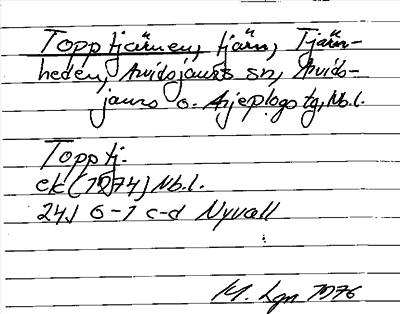 Topptjärnen, tjärn, Tjärn-
heden, Arvidsjaurs sn, Arvids-
jaurs o. Arjeplogs tg, Nb.l.
Topptj.
ek (1974) Nb.l.
24J 6-7 c-d Nyvall
M. Lgn 1976